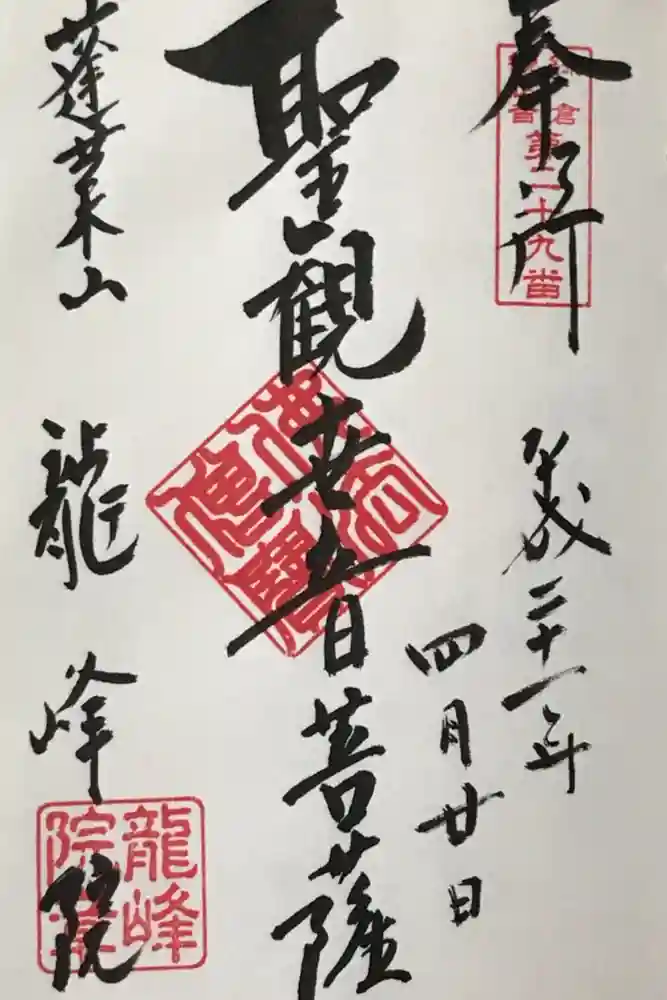 奉拝
鎌倉
観音
第二十九番
平成三十一年
四月廿日
聖観世音菩薩
蓬莱山
龍峰院
龍峰
院章